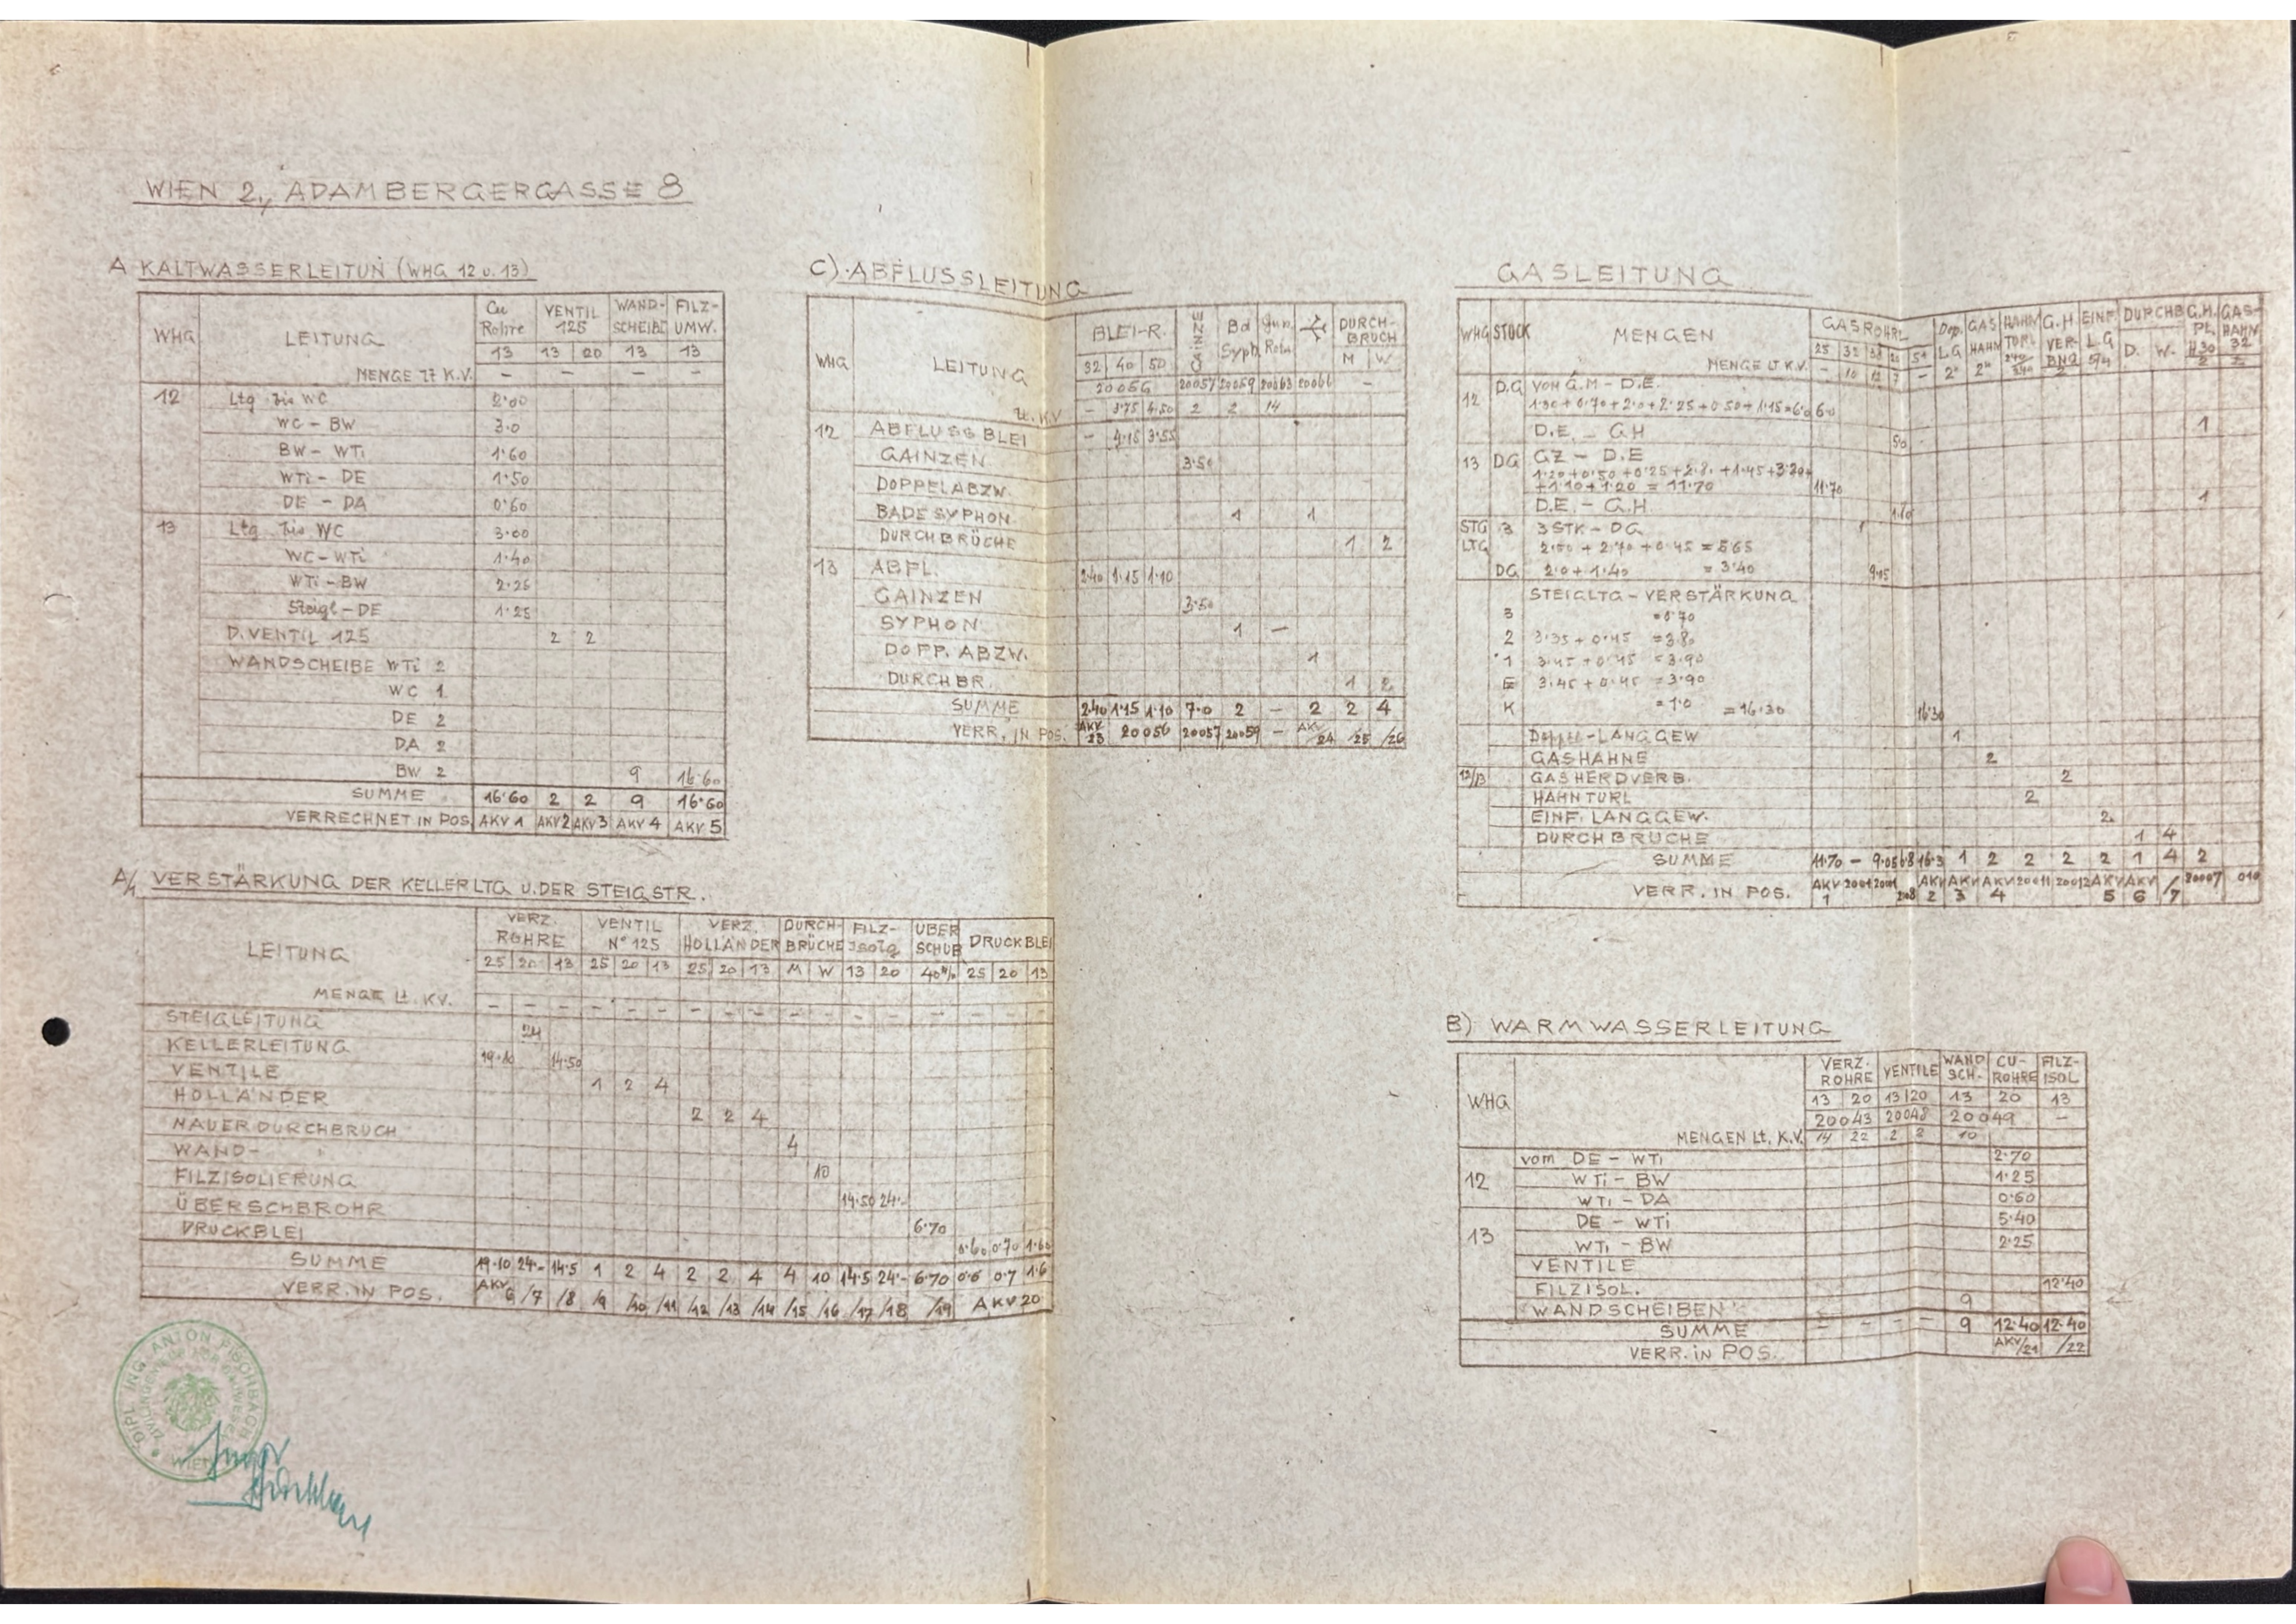 WIEN 2., ADAMBERGERGASSE 8
A KALTWASSERLEITUN (WHG 12 u. 13)
WHG LEITUNG Cu Rohre VENTIL 125 WAND-SCHEIBE FILZ-UMW.
13 13 20 13 13
MENGE LT K.V. – – – –
12 Ltg bis WC 2·00
WC – BW 3·0
BW – WTi 1·60
WTi – DE 1·50
DE – DA 0·60
13 Ltg bis WC 3·00
WC – WTi 1·40
WTi – BW 2·25
Steigl – DE 1·25
D. VENTIL 125 2 2
WANDSCHEIBE WTi 2
WC 1
DE 2
DA 2
BW 2 9 16·60
SUMME 16·60 2 2 9 16·60
VERRECHNET IN POS AKV 1 AKV 2 AKV 3 AKV 4 AKV 5
A/1 VERSTÄRKUNG DER KELLERLTG U. DER STEIGSTR.
LEITUNG VERZ. ROHRE VENTIL N° 125 VERZ. HOLLÄNDER DURCH-BRÜCHE FILZ-Isolg ÜBER SCHUB DRUCKBLEI
25 20 13 25 20 13 25 20 13 M W 13 20 40 25 20 13
MENGE Lt. KV.
– – – – – – – – – – – – – – – – –
STEIGLEITUNG 24
KELLERLEITUNG 19·10 14·50
VENTILE 1 2 4
HOLLÄNDER 2 2 4
MAUERDURCHBRUCH 4
WAND– " 10
FILZISOLIERUNG 14·50 24·–
ÜBERSCHBROHR 6·70
DRUCKBLEI 0·60 0·70 1·60
SUMME 19·10 24·– 14·5 1 2 4 2 2 4 4 10 14·5 24·– 6·70 0·6 0·7 1·6
VERR. IN POS. AKV 6 /7 /8 /9 /10 /11 /12 /13 /14 /15 /16 /17 /18 /19 AKV 20
DIPL. ING. ANTON PISCHBACH
ZIVILINGENIEUR FÜR BAUWESEN
WIEN
C). ABFLUSSLEITUNG
WHG LEITUNG BLEI-R. GAINZE Bd Syph. DURCH-BRUCH
32 40 50 M W
20056 20057 20059 20063 20066 –
Lt. KV – 3·75 4·50 2 2 14
12 ABFLUSS BLEI – 4·15 3·55
GAINZEN 3·50
DOPPELABZW.
BADESYPHON 1 1
DURCHBRÜCHE 1 2
13 ABFL. 2·40 1·15 1·10
GAINZEN 3·50
SYPHON 1 –
DOPP. ABZW. 1
DURCHBR. 1 2
SUMME 2·40 1·15 1·10 7·0 2 – 2 2 4
VERR. IN POS. AKV 23 20056 20057 20059 – AKV/24 /25 /26
GASLEITUNG
WHG STOCK MENGEN GASROHRE Dop. L.G GAS HAHN HAHN TÜRL G.H VER-BND EINF L.G DURCHB G.H. PL. GAS-HAHN
25 32 38 20 51 2" 2" 2 5/4 D. W. 32
MENGE LT K.V. – 10 12 7 –
12 D.G VOM G.M – D.E.
1·30 + 0·70 + 2·0 + 2·25 + 0·50 + 1·15 = 6·0 6·0
D.E. – G.H 5·0 1
13 DG GZ – D.E
1·20 + 0·50 + 0·25 + 2·8 + 1·45 + 3·20
+ 1·10 + 1·20 = 11·70 11·70
D.E. – G.H 1·10 1
STG LTG 3 3 STK – DG
2·50 + 2·70 + 0·45 = 5·65
DG 2·0 + 1·40 = 3·40 9·05
STEIGLTG – VERSTÄRKUNG
3 = 0·70
2 3·35 + 0·45 = 3·80
1 3·45 + 0·45 = 3·90
E 3·45 + 0·45 = 3·90
K = 1·0 = 16·30 16·30
Doppel-LANGGEW 1
GASHÄHNE 2
12/13 GASHERDVERB. 2
HAHNTÜRL 2
EINF. LANGGEW. 2
DURCHBRÜCHE 1 4
SUMME 11·70 – 9·05 6·8 16·3 1 2 2 2 2 1 4 2
VERR. IN POS. AKV 1 2001 2001 208 AKV 2 AKV 3 AKV 4 20011 20012 AKV 5 AKV 6 /7 20007 010
B) WARMWASSERLEITUNG
WHG VERZ. ROHRE VENTILE WAND SCH. CU-ROHRE FILZ-ISOL
13 20 13 20 13 20 13
20043 20048 20049 –
MENGEN Lt. K.V. 14 22 2 2 10
12 vom DE – WTi 2·70
WTi – BW 1·25
WTi – DA 0·60
13 DE – WTi 5·40
WTi – BW 2·25
VENTILE
FILZISOL. 12·40
WANDSCHEIBEN 9
SUMME – – – – 9 12·40 12·40
VERR. iN POS. AKV/21 /22